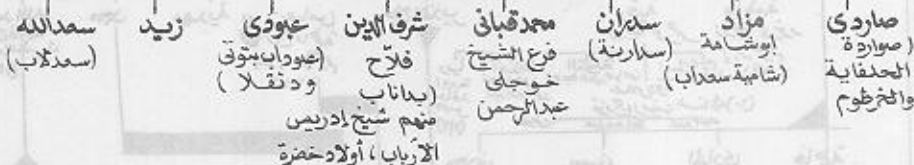 صاردى
(صواردة
الحلفاية
والخرطوم
مزاد
ابوشامة
(شامية سعداب)
سدران
(سدارنة)
محمد قبانى
فرع الشيخ
خوجلى
عبدالرحمن
شرف الدين
فلاح
(بداناب
منهم شيخ إدريس
الأرباب، أولاد خضرة
عبودى
(عبوداب بتوتى
ودنقلا)
زيد
سعدالله
(سعدلاب)